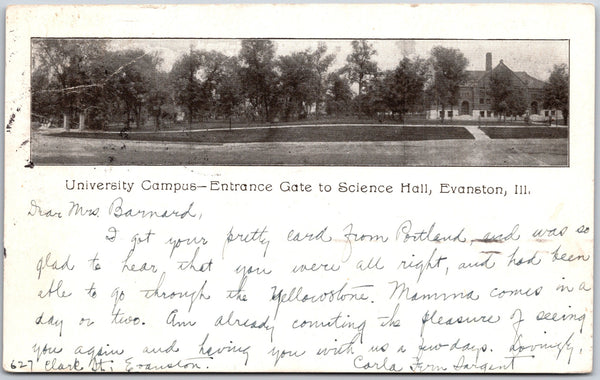 University Campus—Entrance Gate to Science Hall, Evanston, Ill.
Dear Mrs Barnard,
I got your pretty card from Portland, and was so
glad to hear that you were all right, and had been
able to go through the Yellowstone. Mamma comes in a
day or two. Am already counting the pleasure of seeing
you again and having you with us a few days. Lovingly,
627 Clark St., Evanston. Carla Fern Sargent